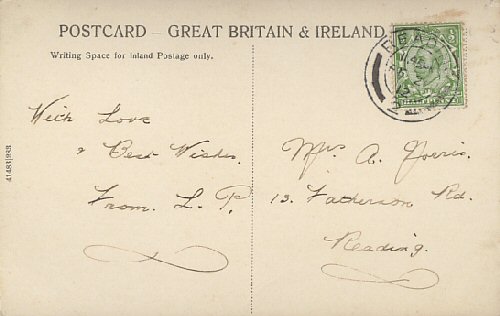 POSTCARD — GREAT BRITAIN & IRELAND
Writing Space for Inland Postage only.
With Love
& Best Wishes.
From. L. P.
Mrs A. Norris.
13. Fatherson Rd.
Reading.
41483/93B